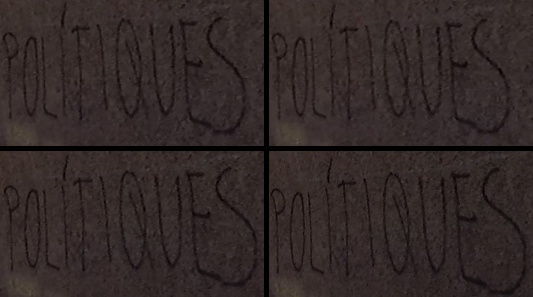 POLÍTIQUES
POLÍTIQUES
POLÍTIQUES
POLÍTIQUES